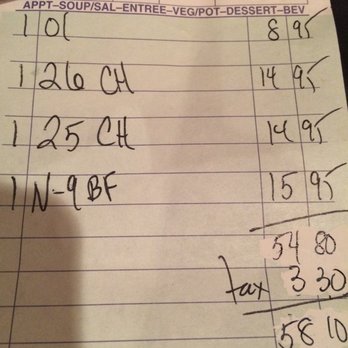 APPT–SOUP/SAL–ENTREE–VEG/POT–DESSERT–BEV
1 OC 8 95
1 26 CH 14 95
1 25 CH 14 95
1 N-9 BF 15 95
54 80
tax 3 30
58 10